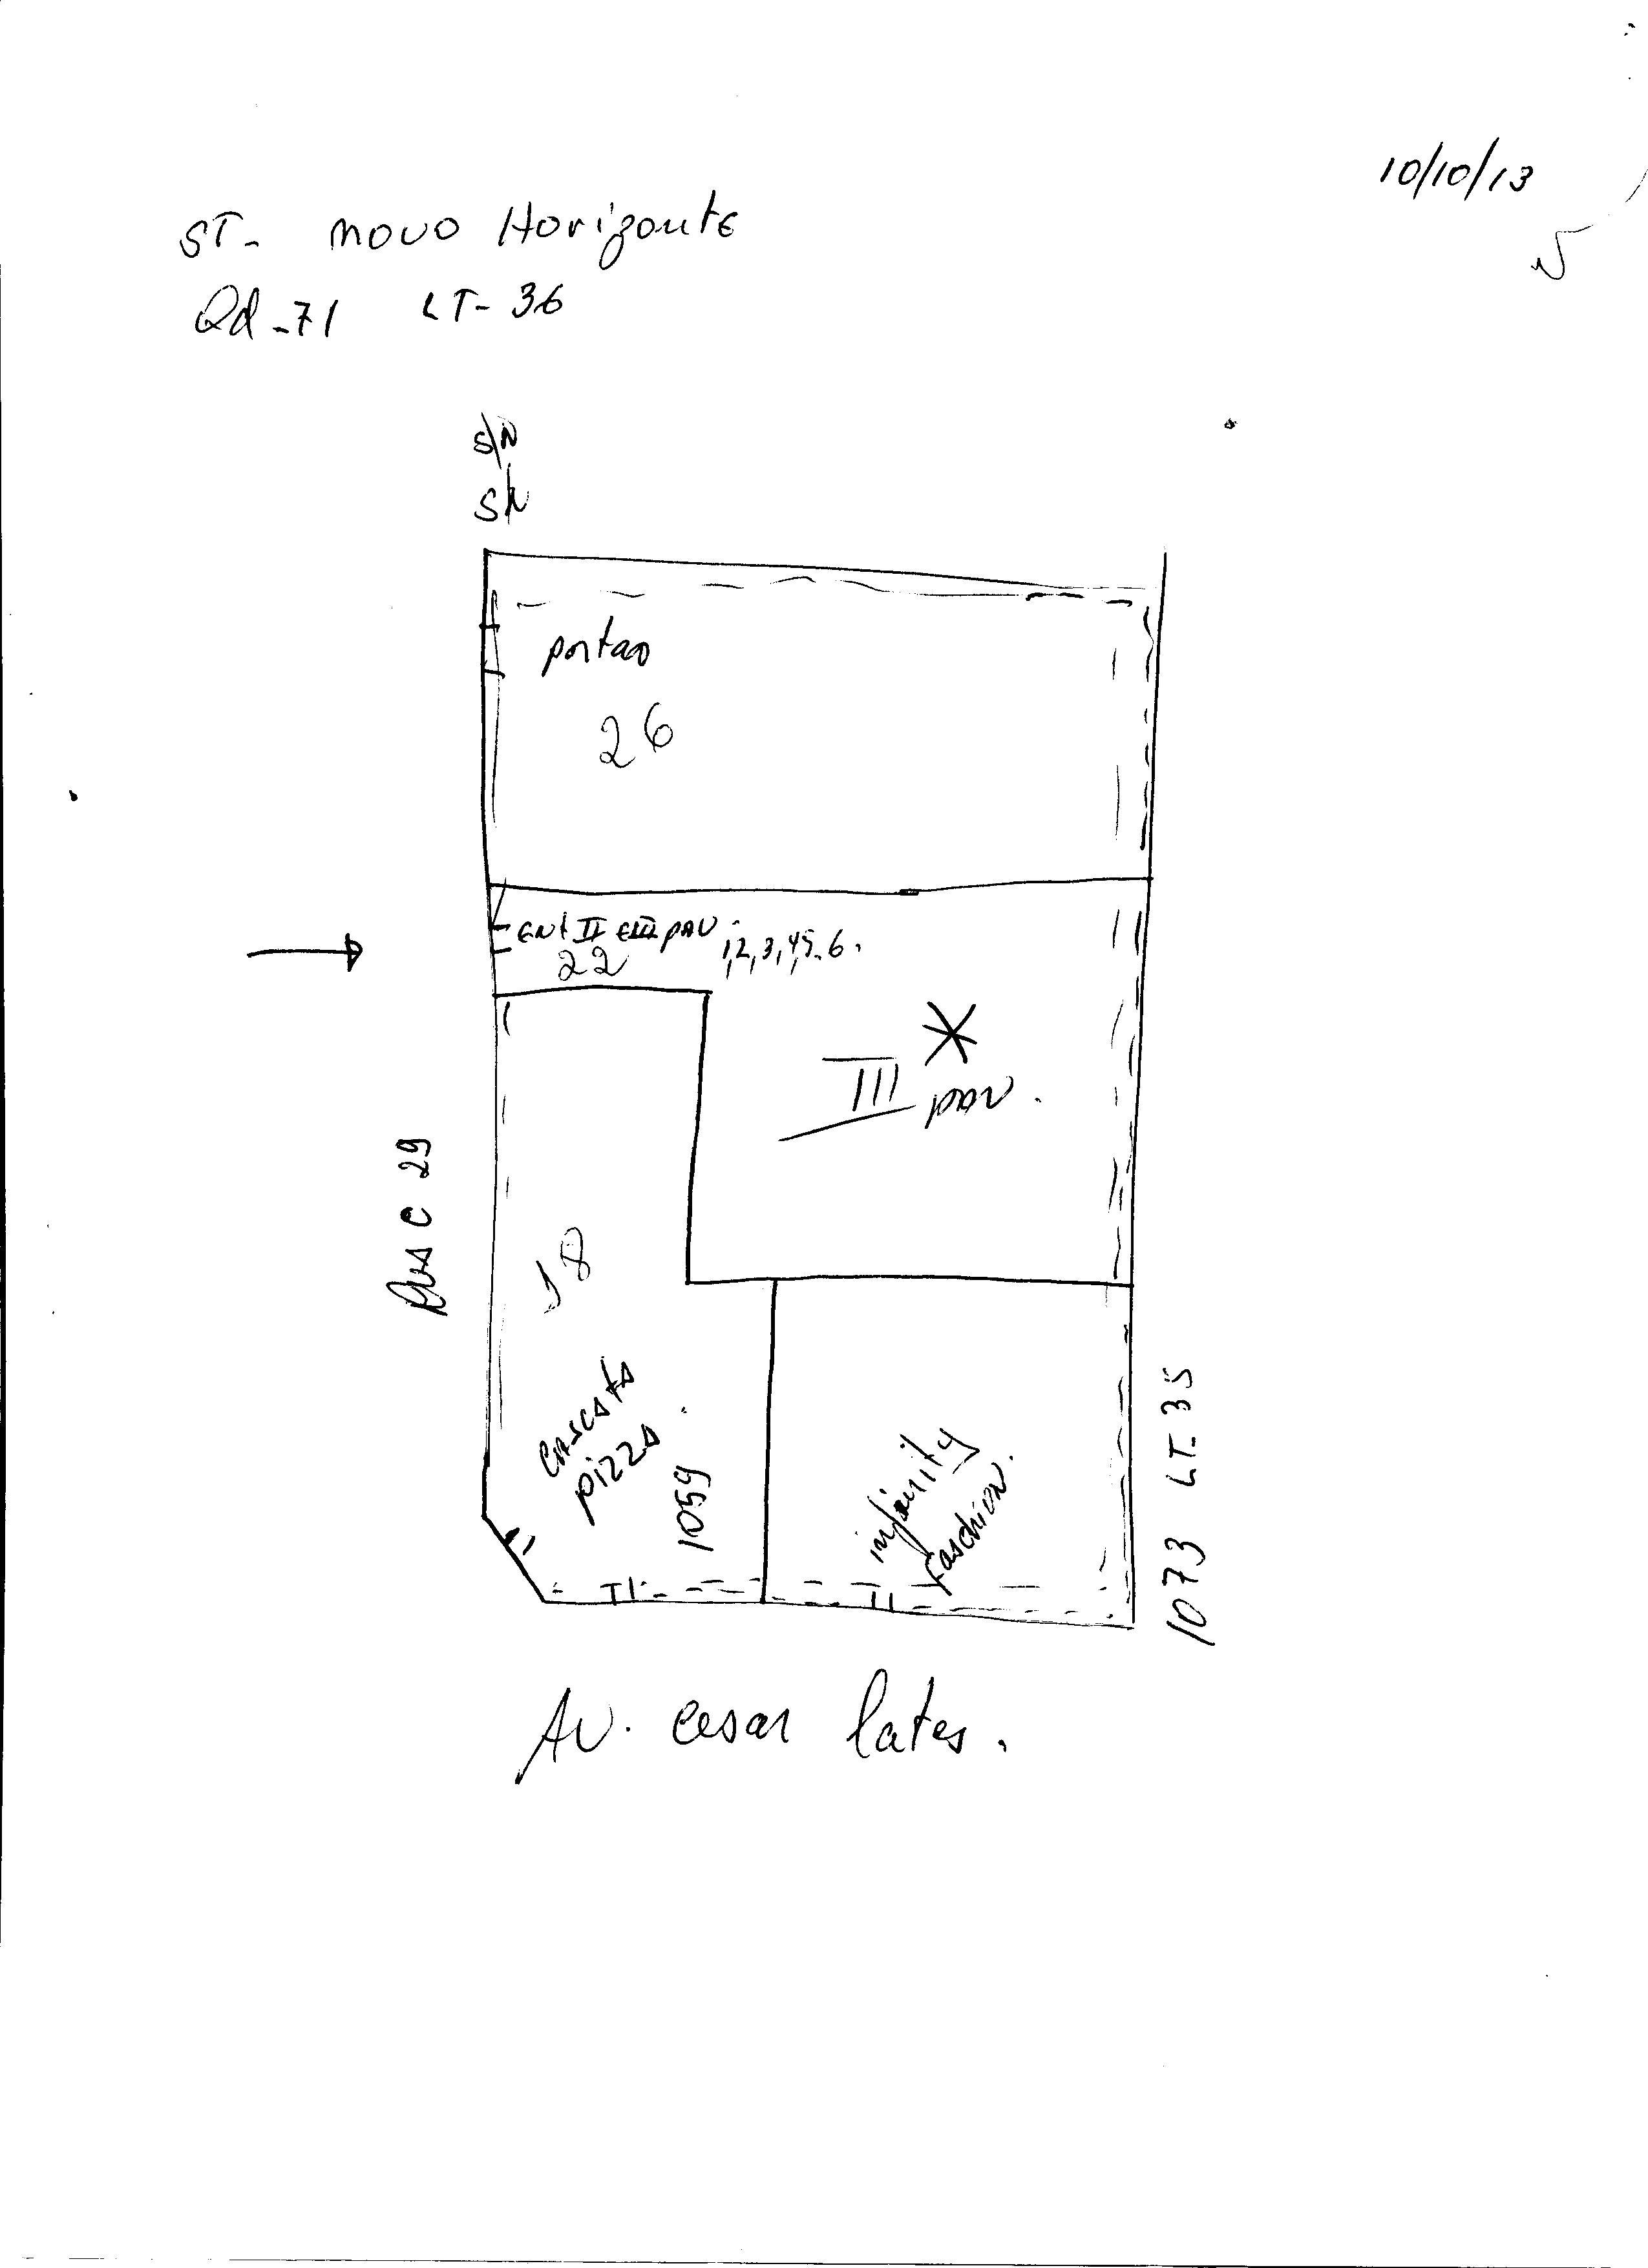 10/10/13
ST- novo Horizonte
Qd-71 LT-36
S/N
S/N
portao
26
ent II e III pav.
1,2,3,4,5,6.
22
III pav.
Rua C 29
18
cascata
pizza
1059
infinity
faschion.
1073 LT-35
Av. cesar lates.